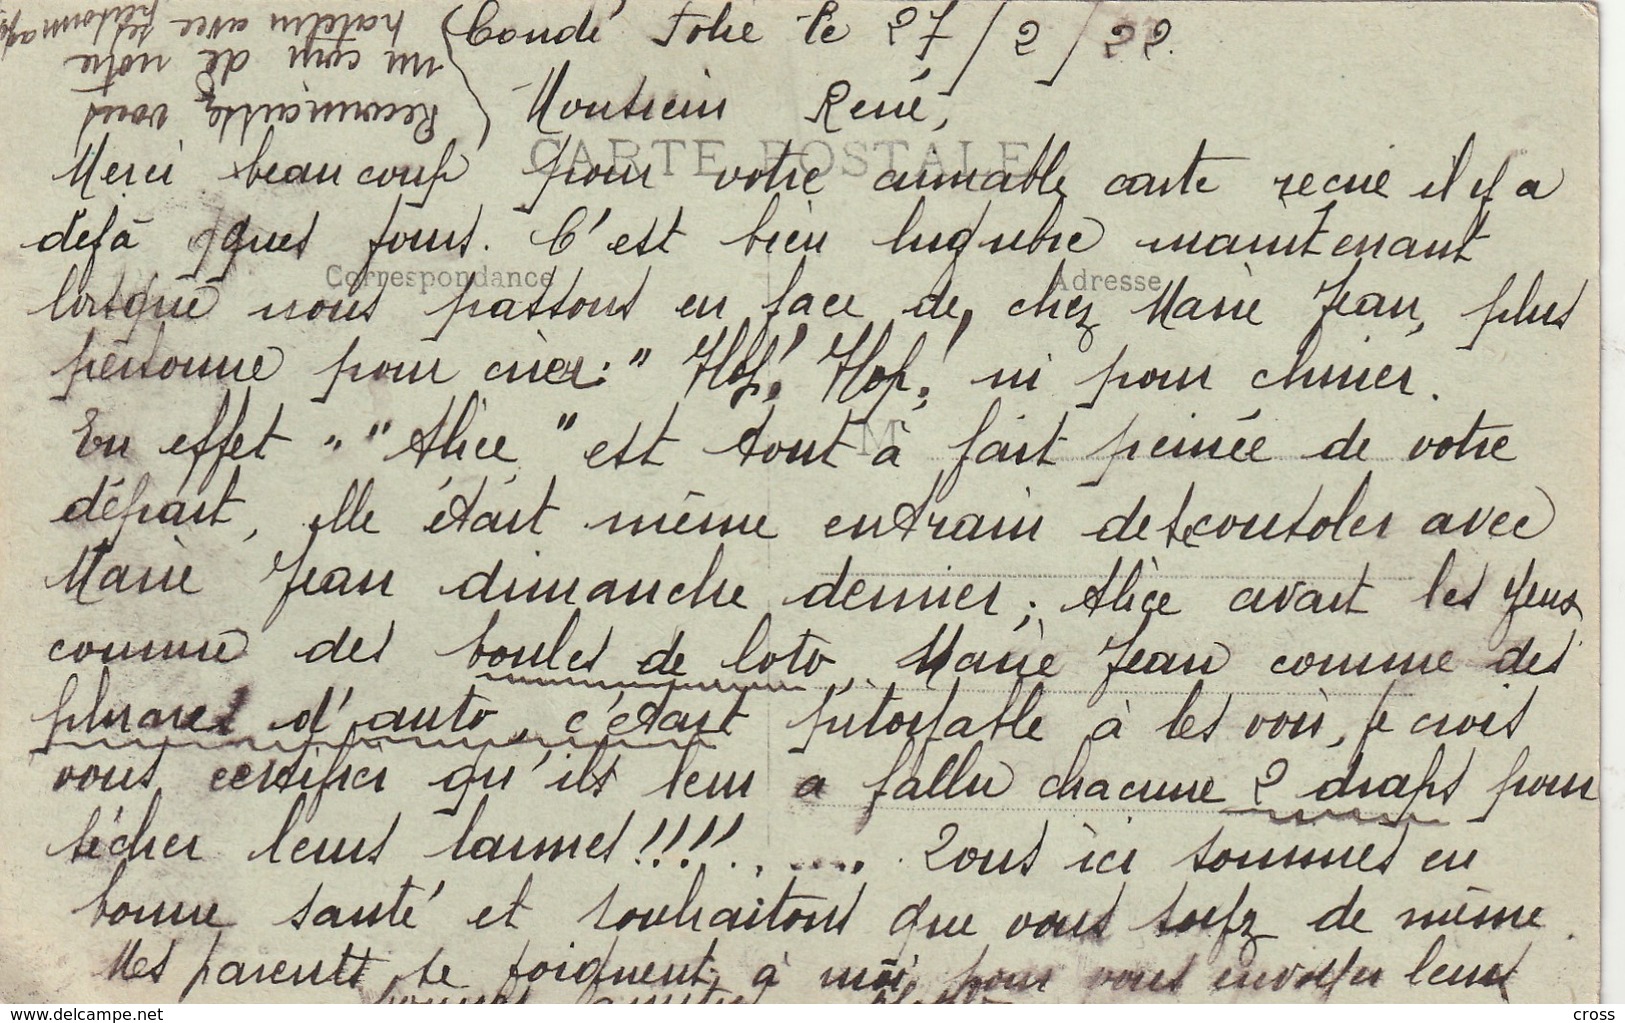 Condé Folie le 27/2/22.
Monsieur René,
Merci beaucoup pour votre aimable carte recue il y a
dejà qques jours. C'est bien lugubre maintenant
lorsque nous passons en face de chez Marie Jean, plus
personne pour crier: " Hop! Hop! ni pour chiner.
En effet " " Alice " est tout à fait peinée de votre
départ, elle était même entrain de se consoler avec
Marie Jean dimanche dernier; Alice avait les yeux
comme des boules de loto, Marie Jean comme des
phrares d'auto, c'était pitoyable à les voir, je crois
vous certifier qu'ils leur a fallu chacune 2 draps pour
sécher leurs larmes!!!!. . .... . Tous ici sommes en
bonne santé et souhaitons que vous soyez de même.
Mes parents se joignent à moi pour vous envoyer leurs
bonnes amitiés
Reconnaissez vous
un coin de notre
patelin avec personnages
CARTE POSTALE
Correspondance
Adresse
M
www.delcampe.net
cross